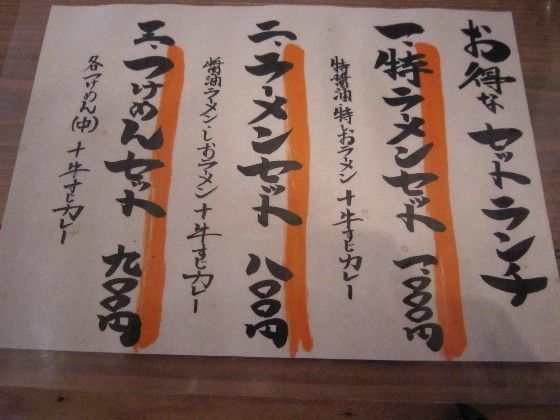 お得な セットランチ
一、特ラーメンセット 一、〇〇〇円
特醤油 特しおラーメン 十 牛すじカレー
二、ラーメンセット 八〇〇円
醤油ラーメン しおラーメン 十 牛すじカレー
三、つけめんセット 九〇〇円
各つけめん(中) 十 牛すじカレー